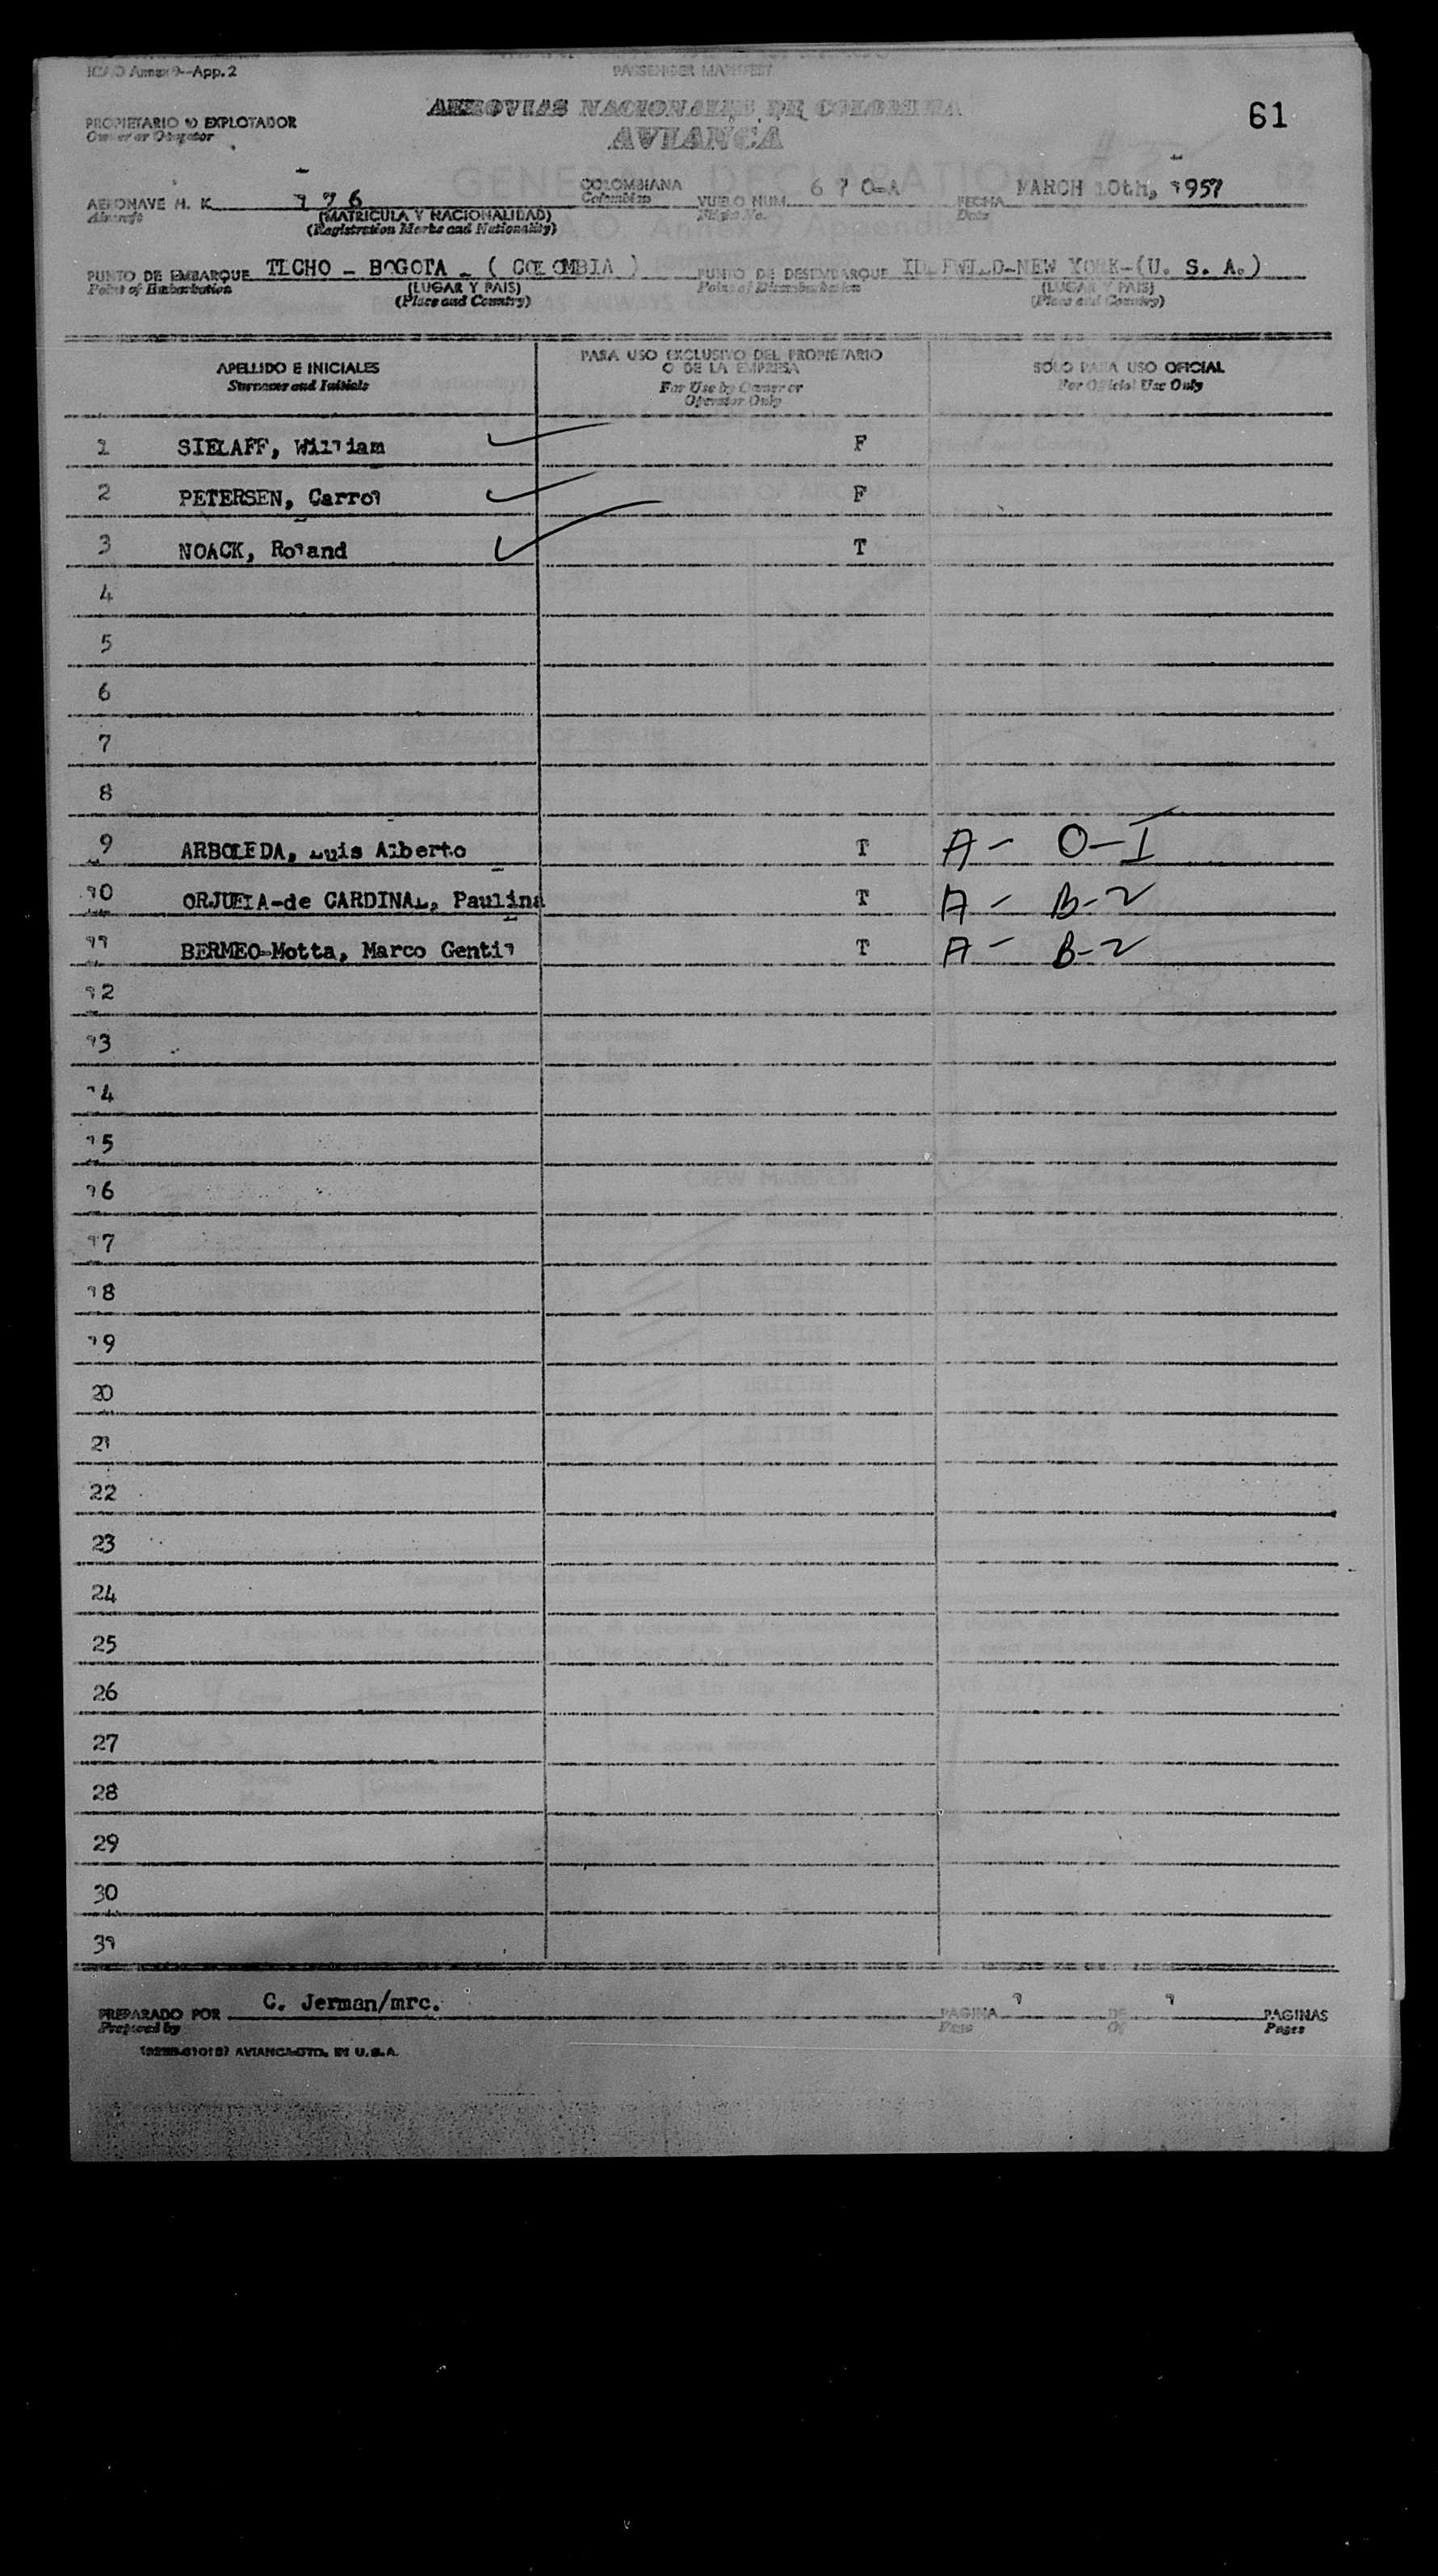 ICAO Annex 9-App. 2
PASSENGER MANIFEST
61
AEROVIAS NACIONALES DE COLOMBIA
PROPIETARIO O EXPLOTADOR
Owner or Operator
AVIANCA
AERONAVE H. K. 176
Aircraft
(MATRICULA Y NACIONALIDAD)
(Registration Marks and Nationality)
COLOMBIANA
Colombian
VUELO NUM. 670-A
Flight No.
FECHA MARCH 10th, 1957
Date
PUNTO DE EMBARQUE TECHO - BOGOTA - ( COLOMBIA )
Point of Embarkation
(LUGAR Y PAIS)
(Place and Country)
PUNTO DE DESEMBARQUE IDLEWILD-NEW YORK-(U. S. A.)
Point of Disembarkation
(LUGAR Y PAIS)
(Place and Country)
APELLIDO E INICIALES
Surname and Initials
PARA USO EXCLUSIVO DEL PROPIETARIO
O DE LA EMPRESA
For Use by Owner or
Operator Only
SOLO PARA USO OFICIAL
For Official Use Only
1 SIELAFF, William F
2 PETERSEN, Carrol F
3 NOACK, Roland T
4
5
6
7
8
9 ARBOLEDA, Luis Alberto T A - O-I
10 ORJUELA-de CARDINAL, Paulina T A - B-2
11 BERMEO-Motta, Marco Gentil T A - B-2
12
13
14
15
16
17
18
19
20
21
22
23
24
25
26
27
28
29
30
31
PREPARADO POR C. Jerman/mrc.
Prepared by
PAGINA 1 DE 1 PAGINAS
Page Of Pages
AVIANCA-OTD. IN U.S.A.